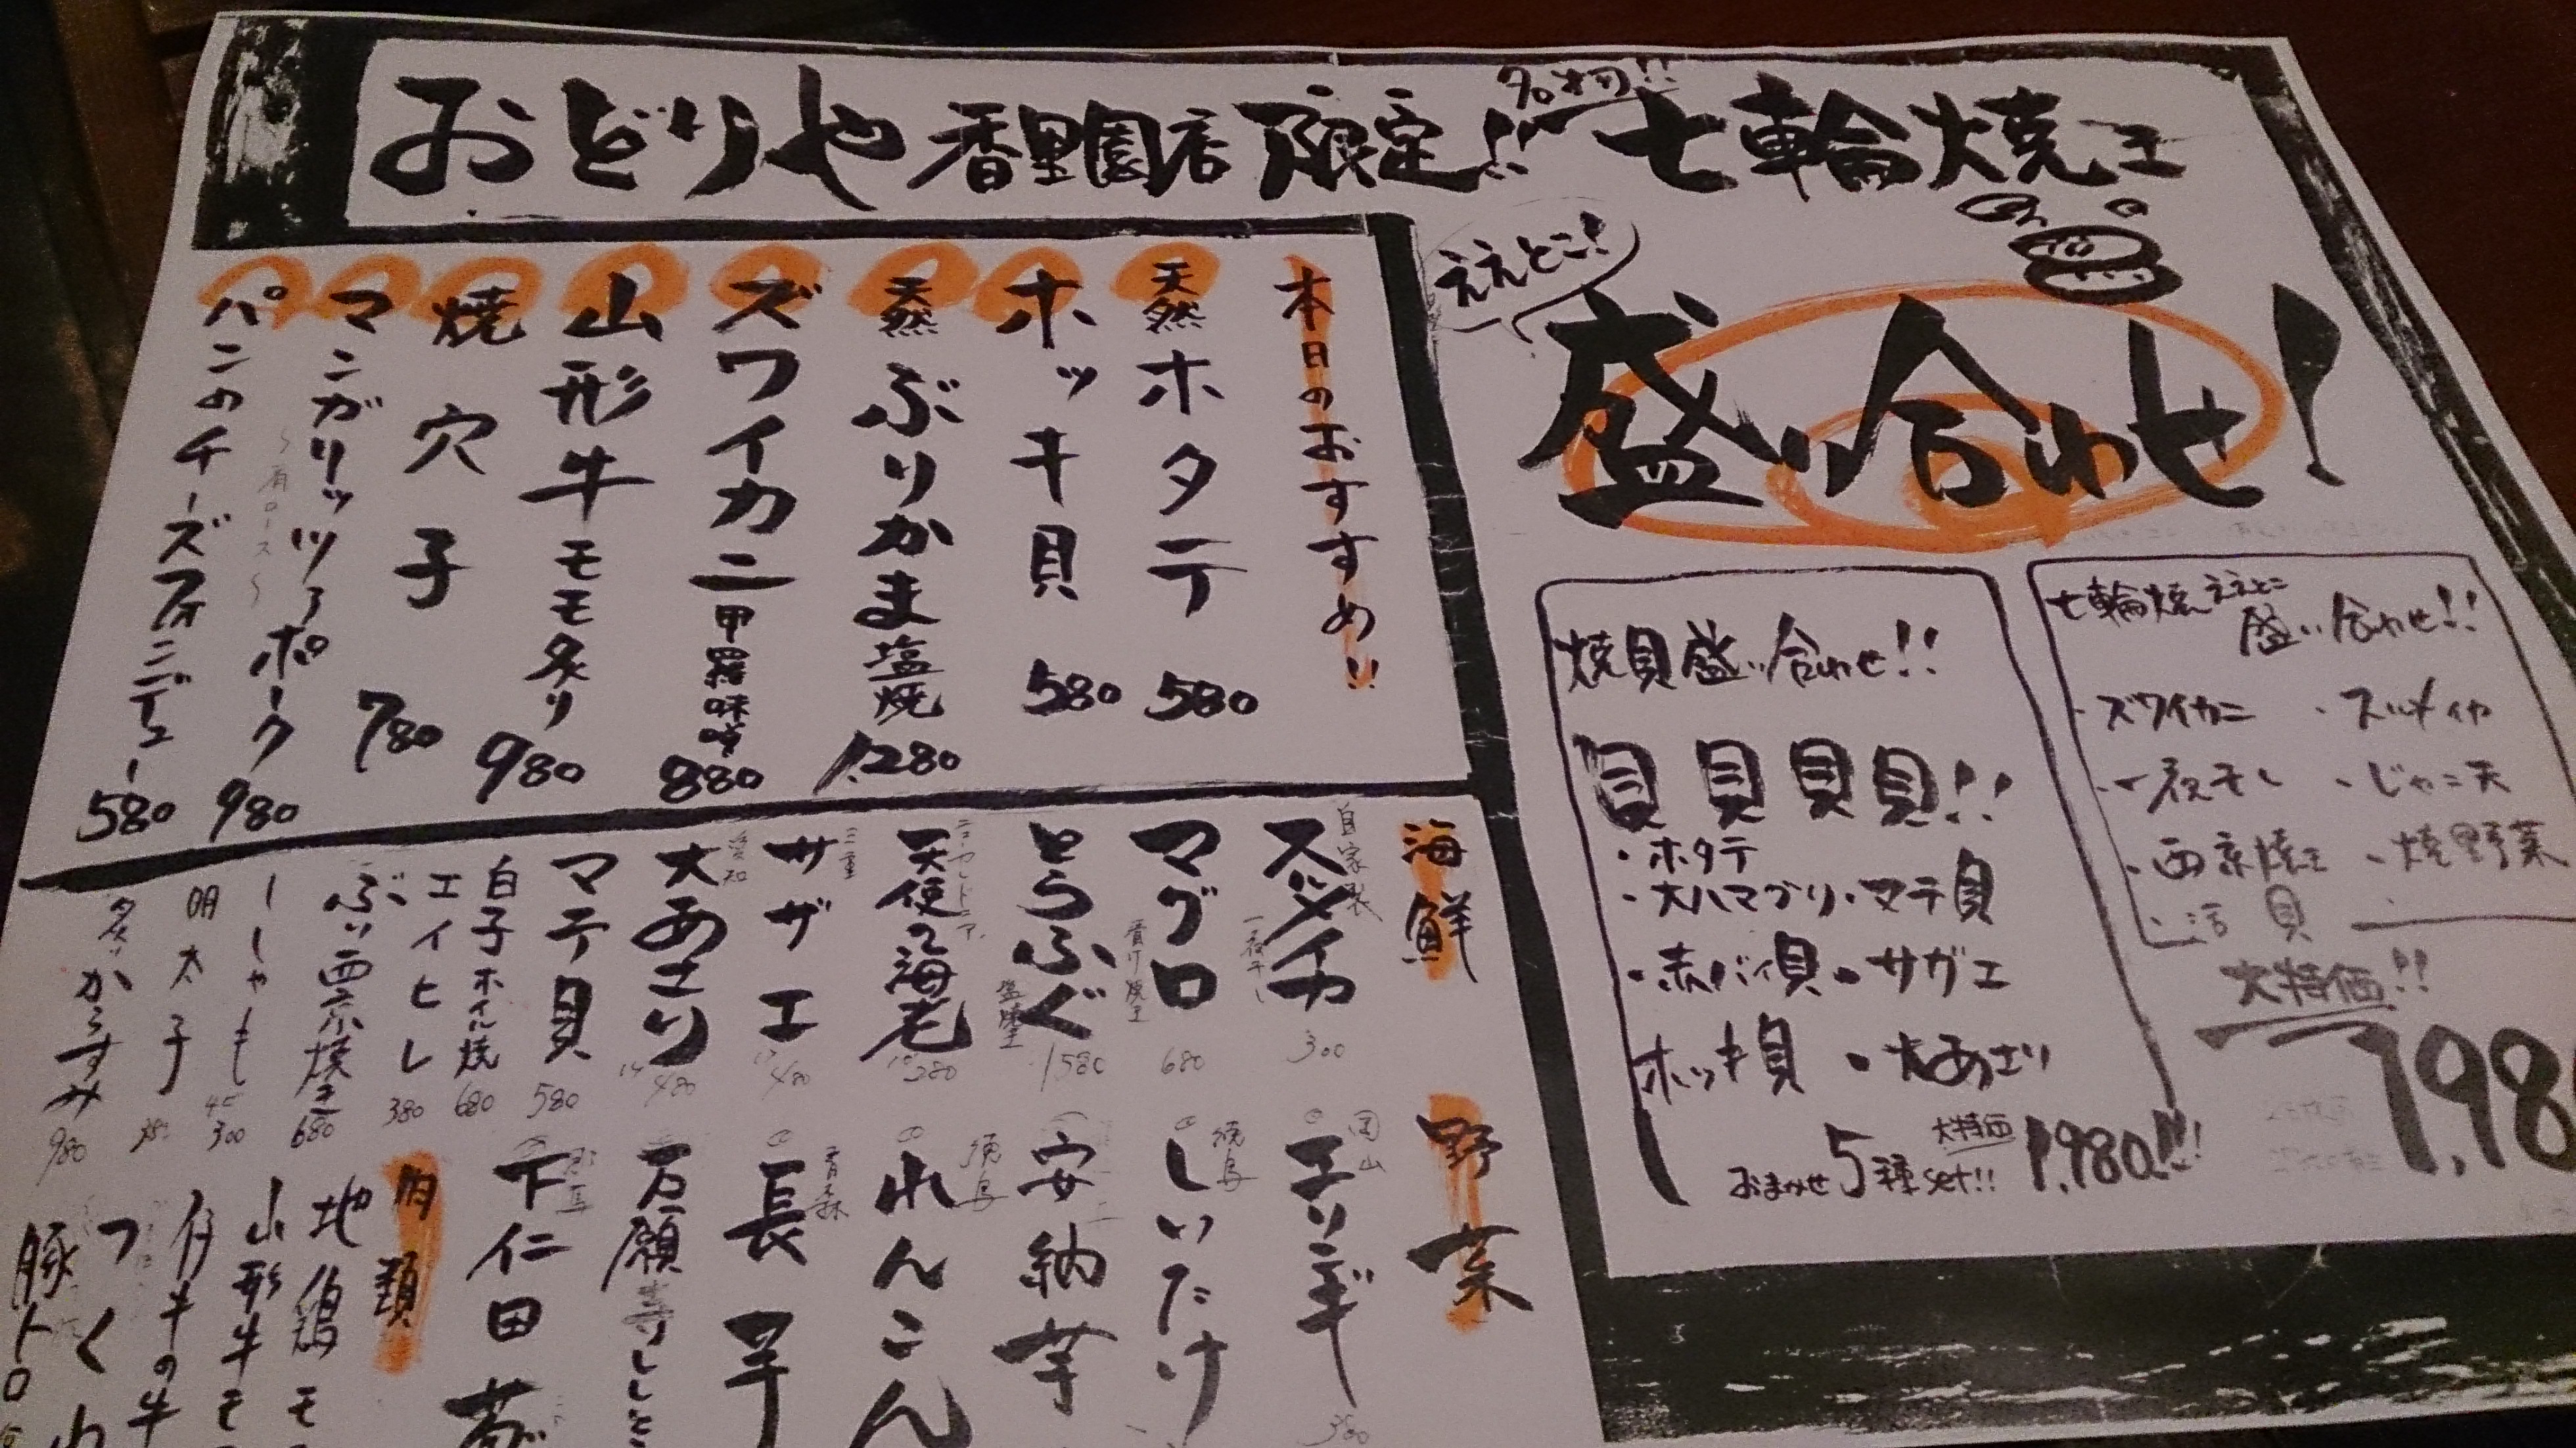 おどりや 香里園店 限定!! 名物!! 七輪焼き
ええとこ!
盛り合わせ!
七輪焼ええとこ
盛り合わせ!!
・ズワイカニ ・スルメイカ
・一夜干し ・じゃこ天
・西京焼き ・焼野菜
・活貝
大特価!!
1,98
焼貝盛り合わせ!!
貝貝貝貝!!
・ホタテ
・大ハマグリ・マテ貝
・赤バイ貝・サザエ
ホッキ貝 ・大あさり
おまかせ5種set!! 大特価 1,980!!!
本日のおすすめ!!
天然ホタテ 580
ホッキ貝 580
天然ぶりかま塩焼 1,280
ズワイカニ甲羅味噌 880
山形牛モモ炙り 980
焼穴子 780
マンガリッツァポーク 980
〜肩ロース〜
パンのチーズフォンデュー 580
海鮮
自家製 スルメイカ 一夜干し 300
マグロ 680
とらふぐ 塩焼き 1580
天使の海老 280
三重 サザエ 480
愛知 大あさり 480
マテ貝 580
白子ホイル焼 680
エイヒレ 380
ぶり西京焼き 680
ししゃも 300
明太子
炙りからすみ 980
野菜
岡山 エリンギ 380
徳島 しいたけ
安納芋
徳島 れんこん
青森 長芋
万願寺ししと
下仁田葱
肉類
地鶏モ
山形牛モ
仔牛の牛
つくね
豚トロ